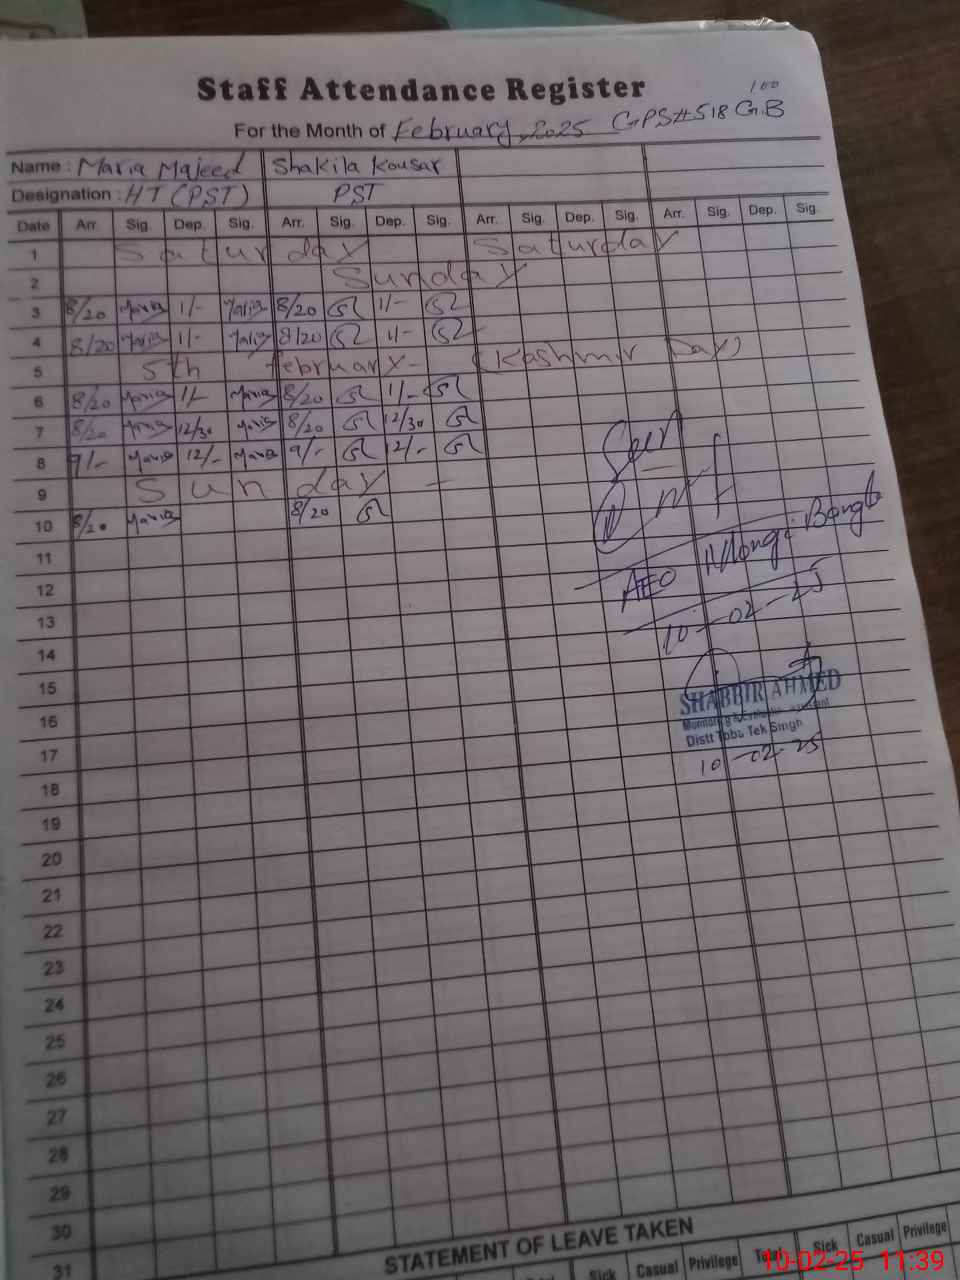 Staff Attendance Register
100
For the Month of February, 2025 GPS#518 G.B
Name : Maria Majeed Shakila Kousar
Designation : HT (PST) PST
Date Arr. Sig. Dep. Sig. Arr. Sig. Dep. Sig. Arr. Sig. Dep. Sig. Arr. Sig. Dep. Sig.
1 Saturday Saturday
2 Sunday
3 8/20 Maria 1/- Maria 8/20 1/-
4 8/20 Maria 1/- Maria 8/20 1/-
5 5th february - (Kashmir Day)
6 8/20 Maria 1/- Maria 8/20 1/-
7 8/20 Maria 12/30 Maria 8/20 12/30
8 9/- Maria 12/- Maria 9/- 12/-
9 Sunday -
10 8/20 Maria 8/20
11
12
13
14
15
16
17
18
19
20
21
22
23
24
25
26
27
28
29
30
31
Seen
AEO Mongi Bangla
10-02-25
SHABBIR AHMED
Monitoring & Evaluation Assistant
Distt Toba Tek Singh
10-02-25
STATEMENT OF LEAVE TAKEN
Sick Casual Privilege Total Sick Casual Privilege
10-02-25 11:39